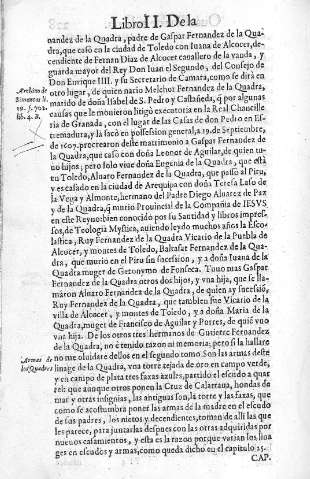 Libro II. De la
nandez de la Quadra, padre de Gaspar Fernandez de la Qua-
dra, que casò en la ciudad de Toledo con Iuana de Alcocer, de-
cendiente de Fernan Diaz de Alcocer cavallero de la vanda, y
guarda mayor del Rey Don Iuan el Segundo, del Consejo de
Don Enrique IIII. y su Secretario de Camara, como se dirà en
otro lugar, de quien nacio Melchor Fernandez de la Quadra,
marido de doña Isabel de S. Pedro y Castañeda, q̃ por algunas
causas que le movieron litigò executoria en la Real Chancille
ria de Granada, con el lugar de las Casas de don Pedro en Es-
tremadura, y la sacò en possession general, a 19. de Septiembre,
de 1607. procrearon deste matrimonio a Gaspar Fernandez de
la Quadra, que casò con doña Leonor de Aguilar, de quien tu-
vo hijos, pero solo vive doña Eugenia de la Quadra, que està
en Toledo, Alvaro Fernandez de la Quadra, que passò al Piru,
y es casado en la ciudad de Arequipa con doña Teresa Laso de
la Vega y Almonte, hermano del Padre Diego Alvarez de Paz
y de la Quadra, q̃ murio Provincial de la Compañia de IESVS
en este Reyno: bien conocido por su santidad y libros impres-
sos, de Teologia Mystica, aviendo leydo muchos años la Esco-
lastica, Ruy Fernandez de la Quadra Vicario de la Puebla de
Alcocer, y montes de Toledo, Baltasar Fernandez de la Qua-
dra, que murio en el Piru sin sucession, y a doña Iuana de la
Quadra muger de Geronymo de Fonseca. Tuvo mas Gaspar
Fernandez de la Quadra otros dos hijos, y vna hija, que se lla-
màron Alvaro Fernandez de la Quadra, de quien ay sucessiò,
Ruy Fernandez de la Quadra, que tambien fue Vicario de la
villa de Alcocer, y montes de Toledo, y a doña Maria de la
Quadra, muger de Francisco de Aguilar y Porres, de quiẽ vvo
vna hija. De los otros tres hermanos de Gutierre Fernandez
de la Quadra, no è tenido razon ni memoria; pero si la hallare
no me olvidare dellos en el segundo tomo. Son las armas deste
linage de la Quadra, vna torre xzada de oro en campo verde,
y en campo de plata tres faxas azules, partido el escudo a quar
tel: que aunque otros ponen la Cruz de Calatrava, hondas de
mar y otras insignias, las antiguas son, la torre y las faxas, que
como se acostumbra poner las armas de la madre en el escudo
de sus padres, los nietos y decendientes, toman de alli las que
les parece, para juntarlas despues con las otras adquiridas por
nuevos casamientos, y esta es la razon porque varian los lina
ges en escudos y armas, como queda dicho en el capitulo 25.
CAP.
Archivo de
Simancas li.
19. f. 702
lib. 4. B.
Armas de
los Quadras